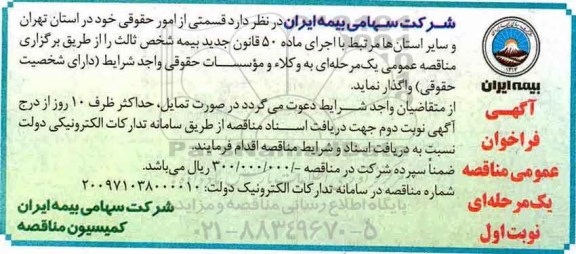 بیمه ایران
آگهی
فراخوان
عمومی مناقصه
یک مرحله‌ای
نوبت اول
شرکت سهامی بیمه ایران در نظر دارد قسمتی از امور حقوقی خود در استان تهران
و سایر استان‌ها مرتبط با اجرای ماده ۵۰ قانون جدید بیمه شخص ثالث را از طریق برگزاری
مناقصه عمومی یک مرحله‌ای به وکلاء و مؤسسات حقوقی واجد شرایط (دارای شخصیت
حقوقی) واگذار نماید.
از متقاضیان واجد شرایط دعوت می گردد در صورت تمایل، حداکثر ظرف ۱۰ روز از درج
آگهی نوبت دوم جهت دریافت اسناد مناقصه از طریق سامانه تدارکات الکترونیکی دولت
نسبت به دریافت اسناد و شرایط مناقصه اقدام فرمایند.
ضمناً سپرده شرکت در مناقصه -/۳۰۰/۰۰۰/۰۰۰ ریال می‌باشد.
شماره مناقصه در سامانه تدارکات الکترونیک دولت: ۲۰۰۹۷۱۰۳۸۰۰۰۰۱۰
شرکت سهامی بیمه ایران
کمیسیون مناقصه
پایگاه اطلاع رسانی مناقصه و مزایده
۰۲۱-۸۸۳۴۹۶۷۰-۵